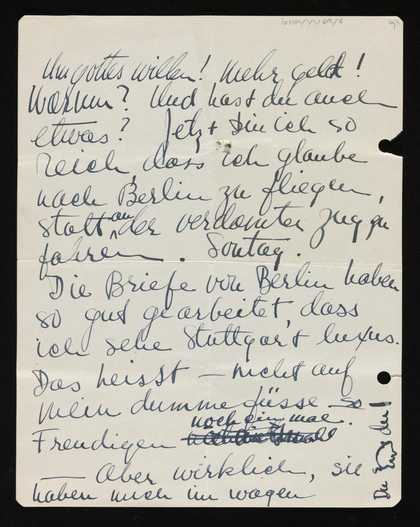 Um gottes willen! Mehr geld!
Warum? Und hast du auch
etwas? Jetzt bin ich so
reich, dass ich glaube
nach Berlin zu fliegen,
statt an der verdamter zug zu
fahren. Sontag.
Die Briefe von Berlin haben
so gut gearbeitet, dass
ich sehe Stuttgart luxus.
Das heisst — nicht auf
mein dumme füsse — so
noch ein mal.
Freudigen
— Aber wirklich, sie
haben mich im wagen